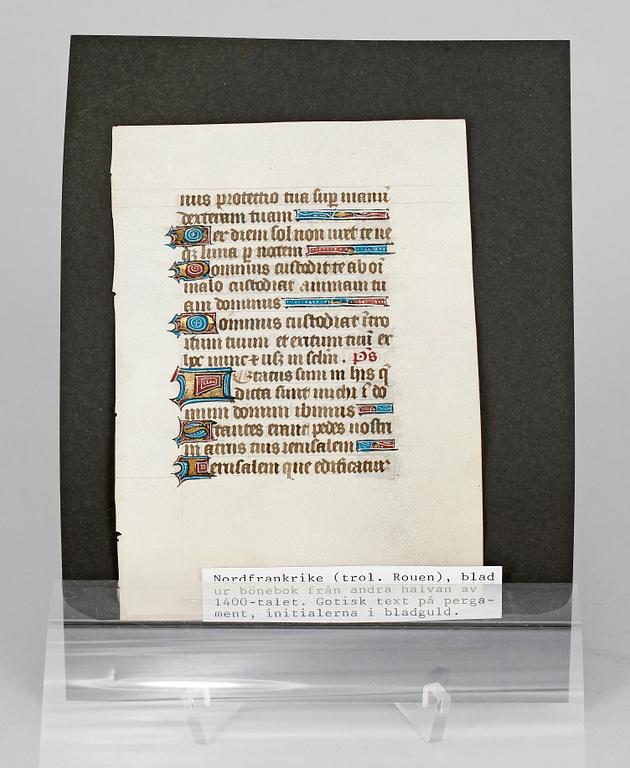 nus protectio tua sup manū
dexteram tuam
Per diem sol non uret te ne
qꝫ luna p noctem
Dominus custodit te ab oī
malo custodiat animam tu
am dominus
Dominus custodiat ītro
itum tuum et exitum tuū ex
hoc nunc ⁊ usqꝫ in sclm . p̄s
Letatus sum in his q̄
dicta sunt michi ī do
mum domini ibimus
Stantes erant pedes nostri
in atriis tuis ierusalem
Ierusalem que edificatur
Nordfrankrike (trol. Rouen), blad
ur bönebok från andra halvan av
1400-talet. Gotisk text på perga-
ment, initialerna i bladguld.